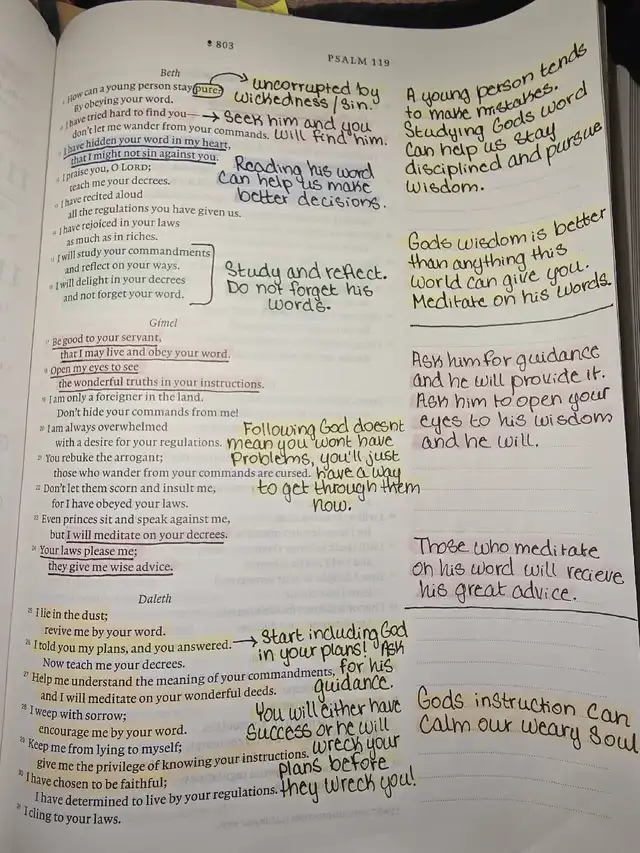 803
PSALM 119
Beth
9 How can a young person stay pure?
By obeying your word.
10 I have tried hard to find you—
don't let me wander from your commands.
11 I have hidden your word in my heart,
that I might not sin against you.
12 I praise you, O LORD;
teach me your decrees.
13 I have recited aloud
all the regulations you have given us.
14 I have rejoiced in your laws
as much as in riches.
15 I will study your commandments
and reflect on your ways.
16 I will delight in your decrees
and not forget your word.
uncorrupted by
wickedness/sin.
Seek him and you
will find him.
Reading his word
can help us make
better decisions.
Study and reflect.
Do not forget his
words.
A young person tends
to make mistakes.
Studying Gods word
can help us stay
disciplined and pursue
wisdom.
Gods wisdom is better
than anything this
world can give you.
Meditate on his words.
Gimel
17 Be good to your servant,
that I may live and obey your word.
18 Open my eyes to see
the wonderful truths in your instructions.
19 I am only a foreigner in the land.
Don't hide your commands from me!
20 I am always overwhelmed
with a desire for your regulations.
21 You rebuke the arrogant;
those who wander from your commands are cursed.
22 Don't let them scorn and insult me,
for I have obeyed your laws.
23 Even princes sit and speak against me,
but I will meditate on your decrees.
24 Your laws please me;
they give me wise advice.
Following God doesnt
mean you wont have
Problems, you'll just
have a way
to get through them
now.
Ask him for guidance
and he will provide it.
Ask him to open your
eyes to his wisdom
and he will.
Those who meditate
on his word will recieve
his great advice.
Daleth
25 I lie in the dust;
revive me by your word.
26 I told you my plans, and you answered.
Now teach me your decrees.
27 Help me understand the meaning of your commandments,
and I will meditate on your wonderful deeds.
28 I weep with sorrow;
encourage me by your word.
29 Keep me from lying to myself;
give me the privilege of knowing your instructions.
30 I have chosen to be faithful;
I have determined to live by your regulations.
31 I cling to your laws.
Start including God
in your plans! Ask
for his
guidance.
You will either have
success or he will
wreck your
plans before
they wreck you!
Gods instruction can
calm our weary soul